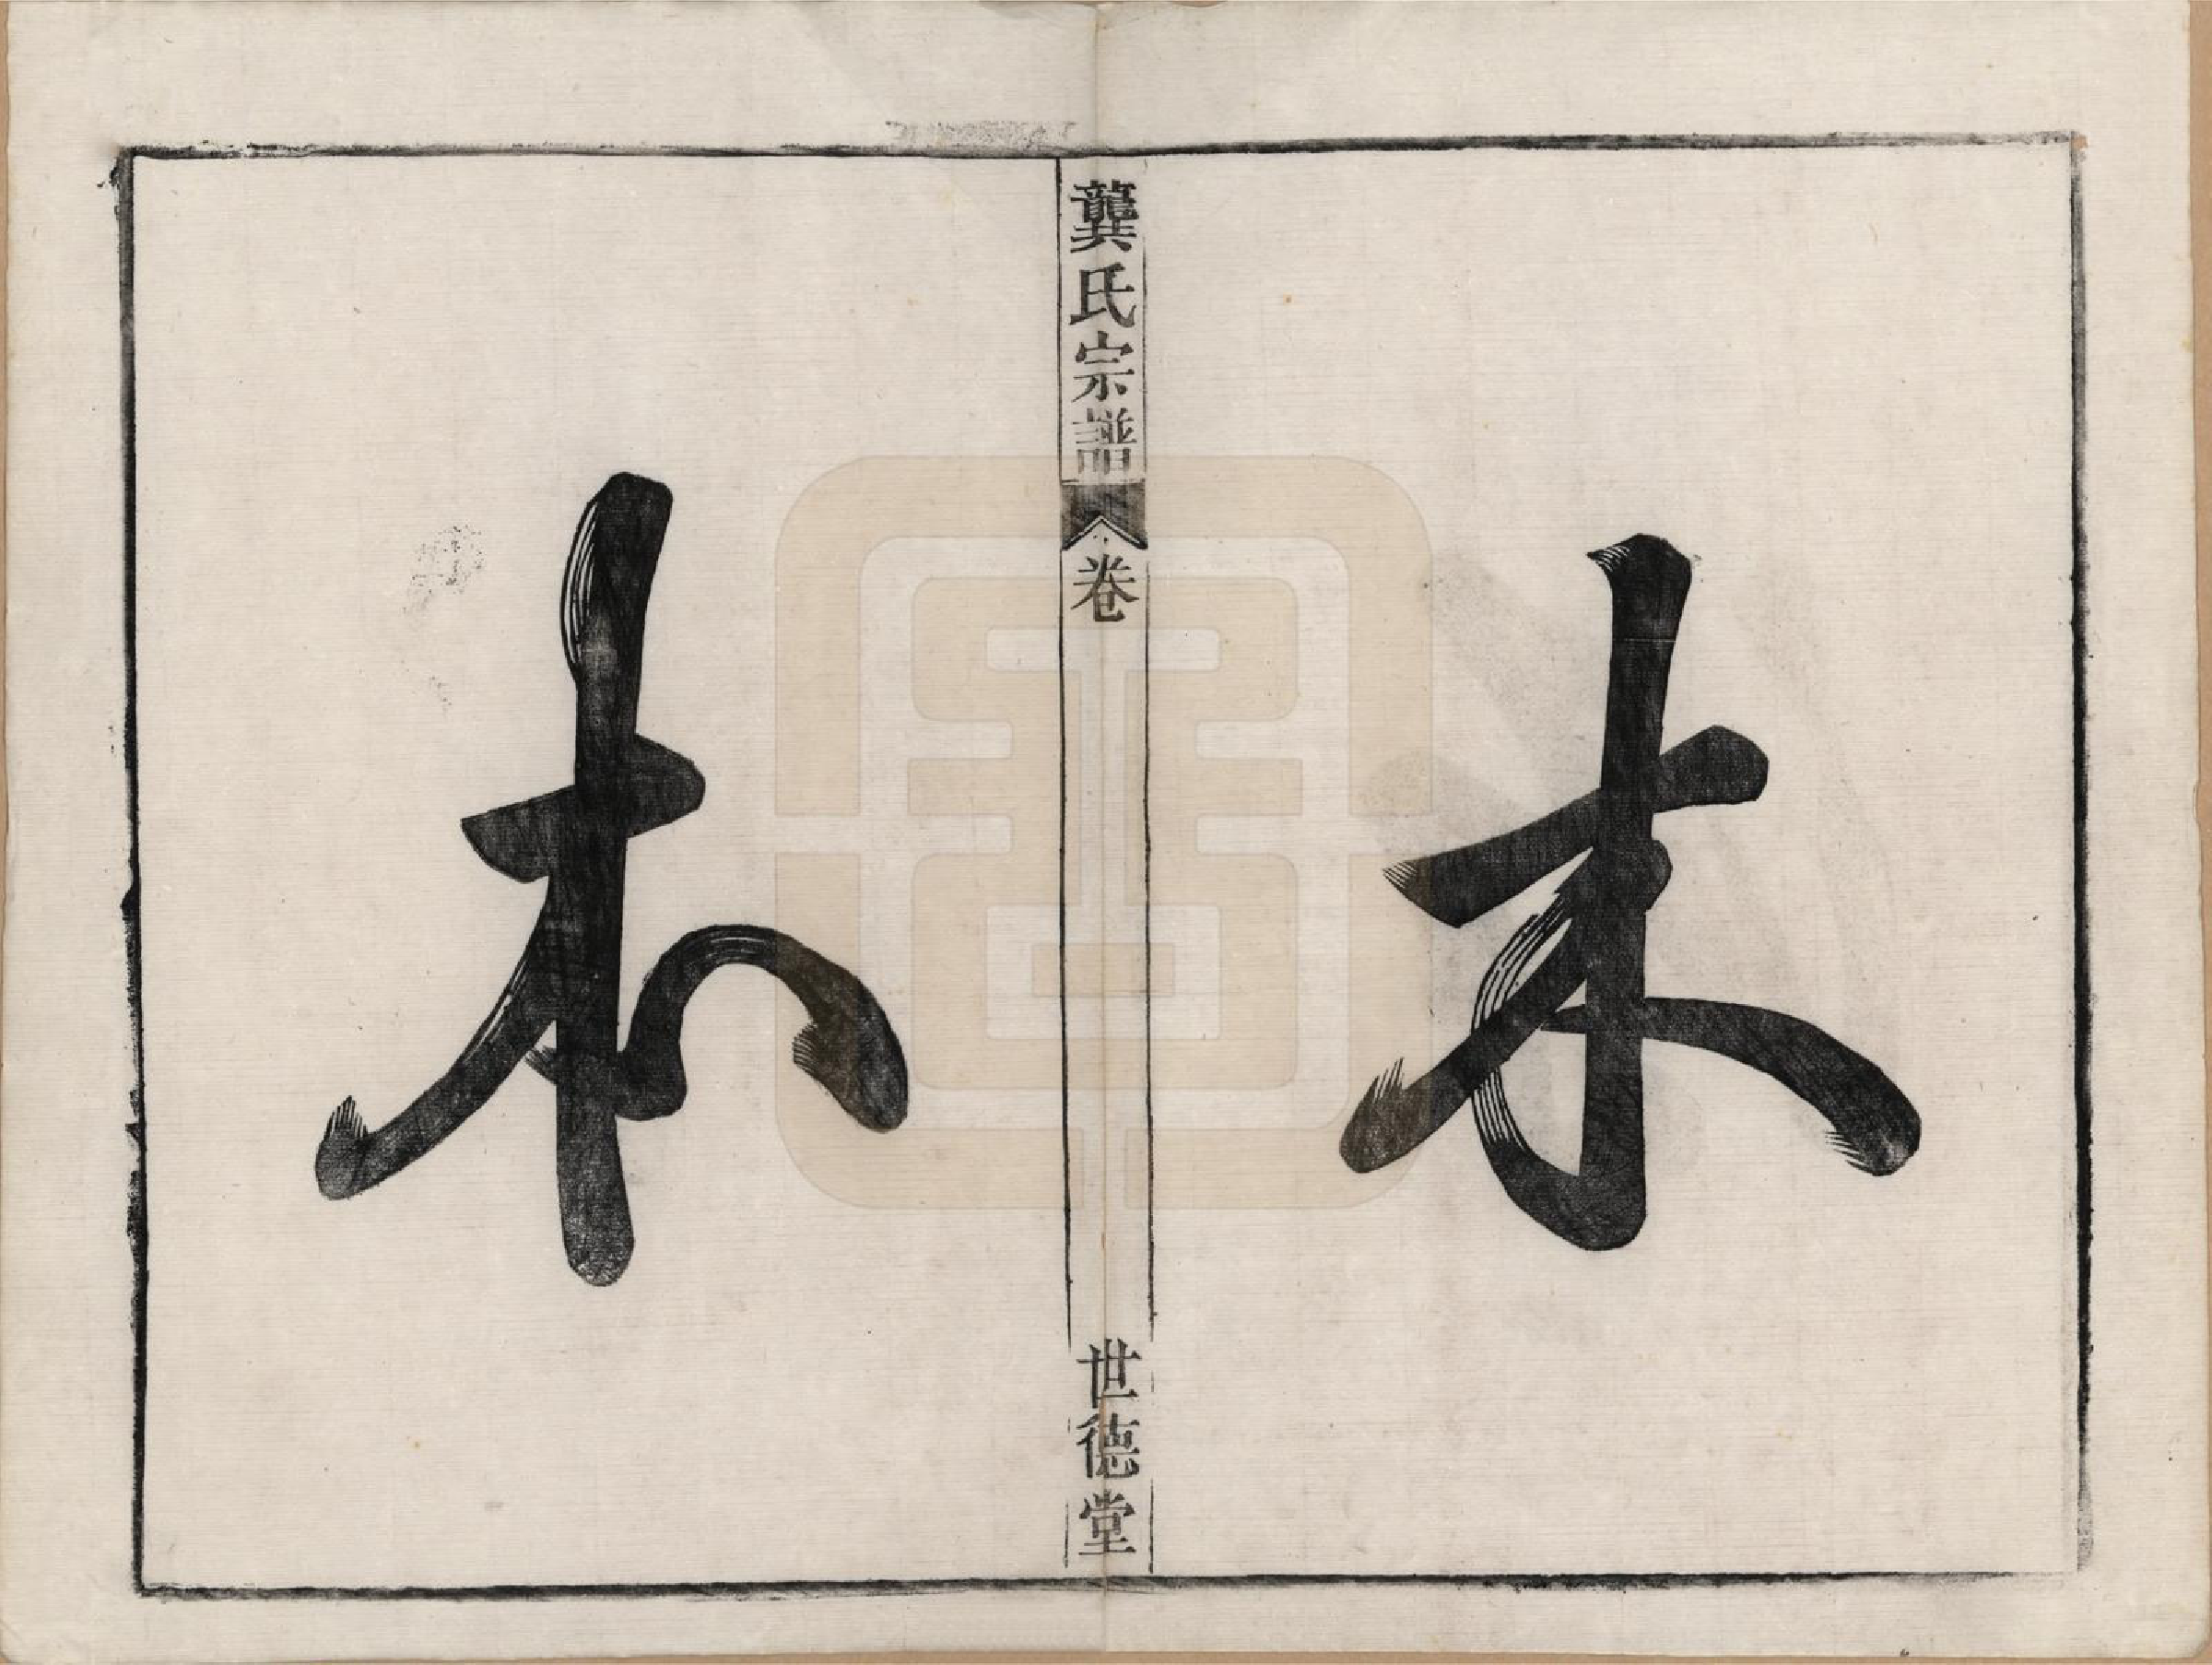 木
龔氏宗譜
卷
世德堂
本